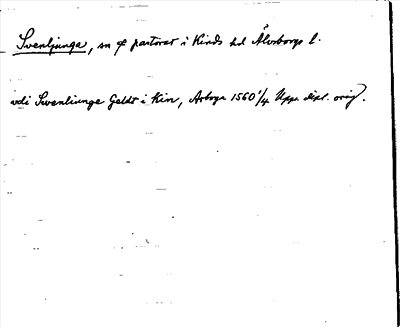 Svenljunga, sn o. pastorat i Kinds hd Älvsborgs l.
udi Swenliunge Geldt i Kin, Arboga 1560 1/4 Upps. dipl. orig.